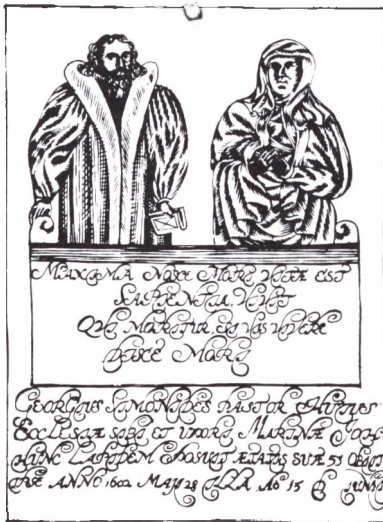 MAXIMA NOSCE MORI VITÆ EST
SAPIENTIA VIVIT
QVI MORITVR SI VIS VIVERE
DISCE MORI
GEORGIUS SIMONIDES PASTOR HUIUS
ECCLESIÆ SIBI ET UXORI MARINÆ
HUNC LAPIDEM POSUIT ÆTATIS SUÆ 55
ANNO 1602 MAJI 28 ILLA AO 15